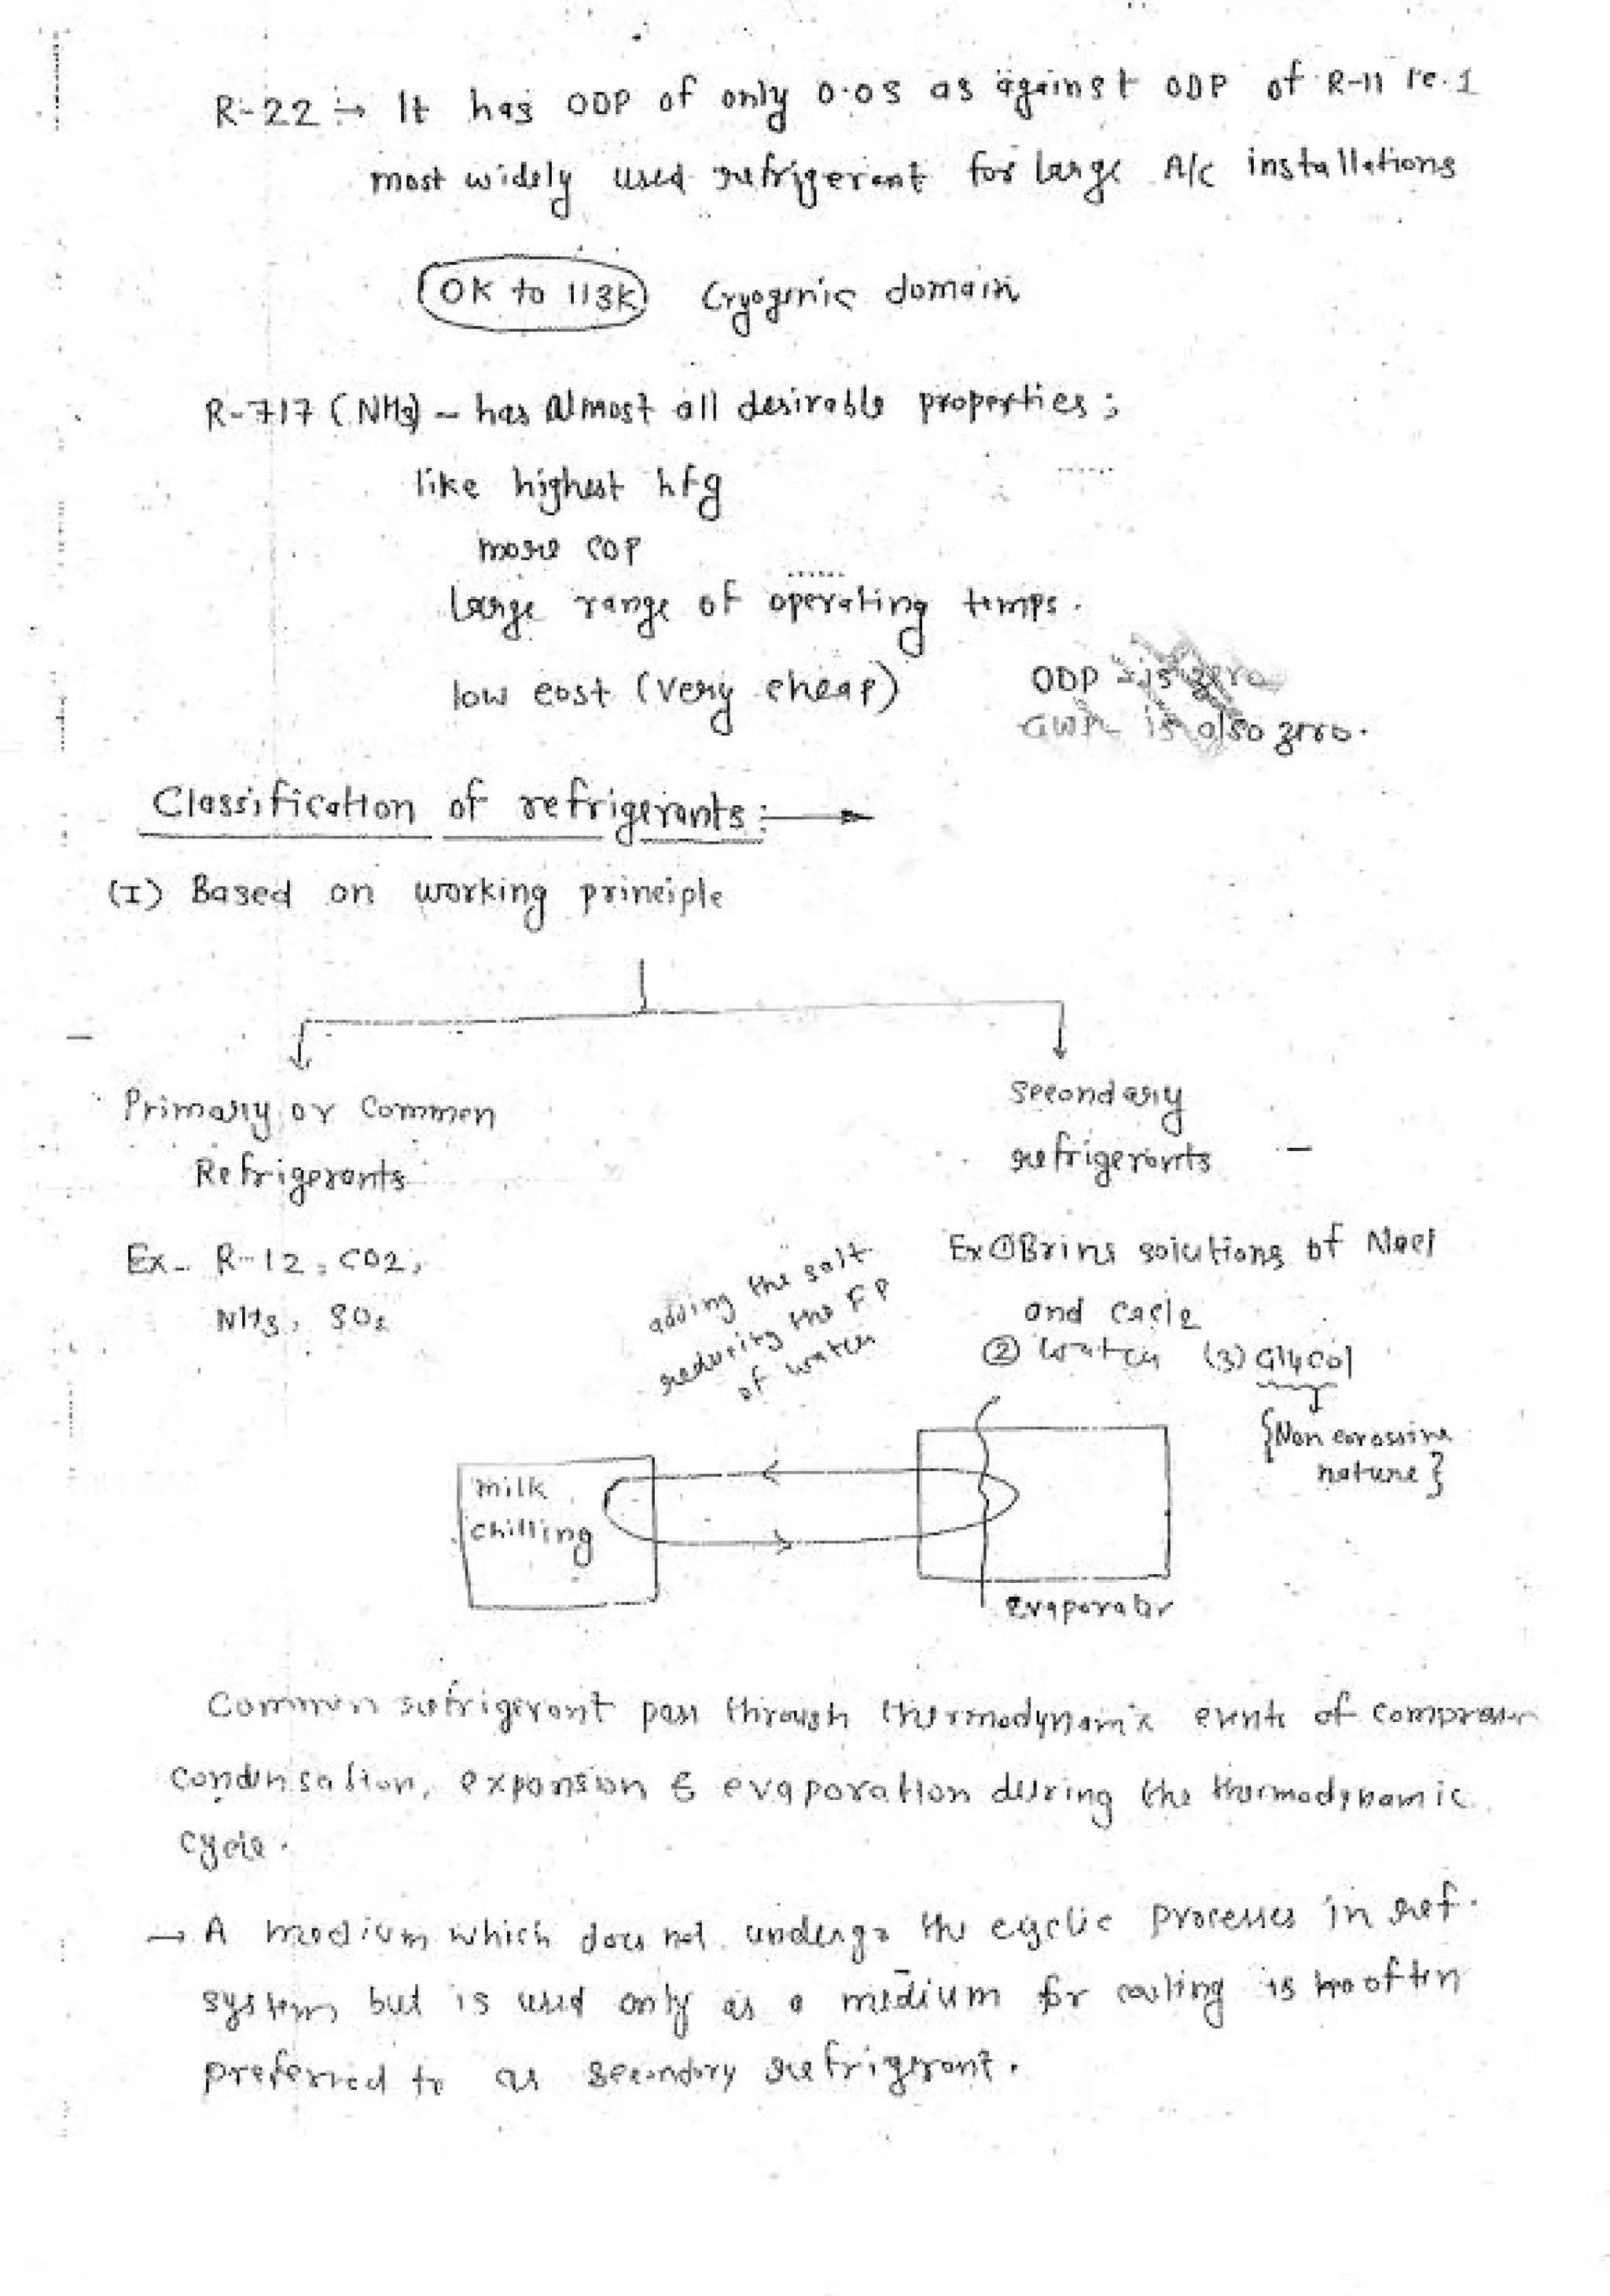 R-22 :→ It has ODP of only 0.05 as against ODP of R-11 i.e. 1
most widely used refrigerant for large A/C installations
0K to 113K Cryogenic domain
R-717 (NH3) - has almost all desirable properties;
like highest hfg
more COP
large range of operating temps.
low cost (very cheap)
ODP is zero
GWP is also zero.
Classification of refrigerants:→
(I) Based on working principle
Primary or Common
Refrigerants
Secondary
refrigerants
Ex- R-12, CO2,
NH3, SO2
adding the salt
reducing the FP
of water
Ex ① Brine solutions of Nacl
and cacl2
② water (3) Glycol
{Non corossive
nature}
milk
chilling
Evaporator
Common refrigerant pass through thermodynamic events of compression
condensation, expansion & evaporation during the thermodynamic
cycle.
→ A medium which does not undergo the cyclic processes in ref.
system but is used only as a medium for cooling is often
preferred to as secondary refrigerant.